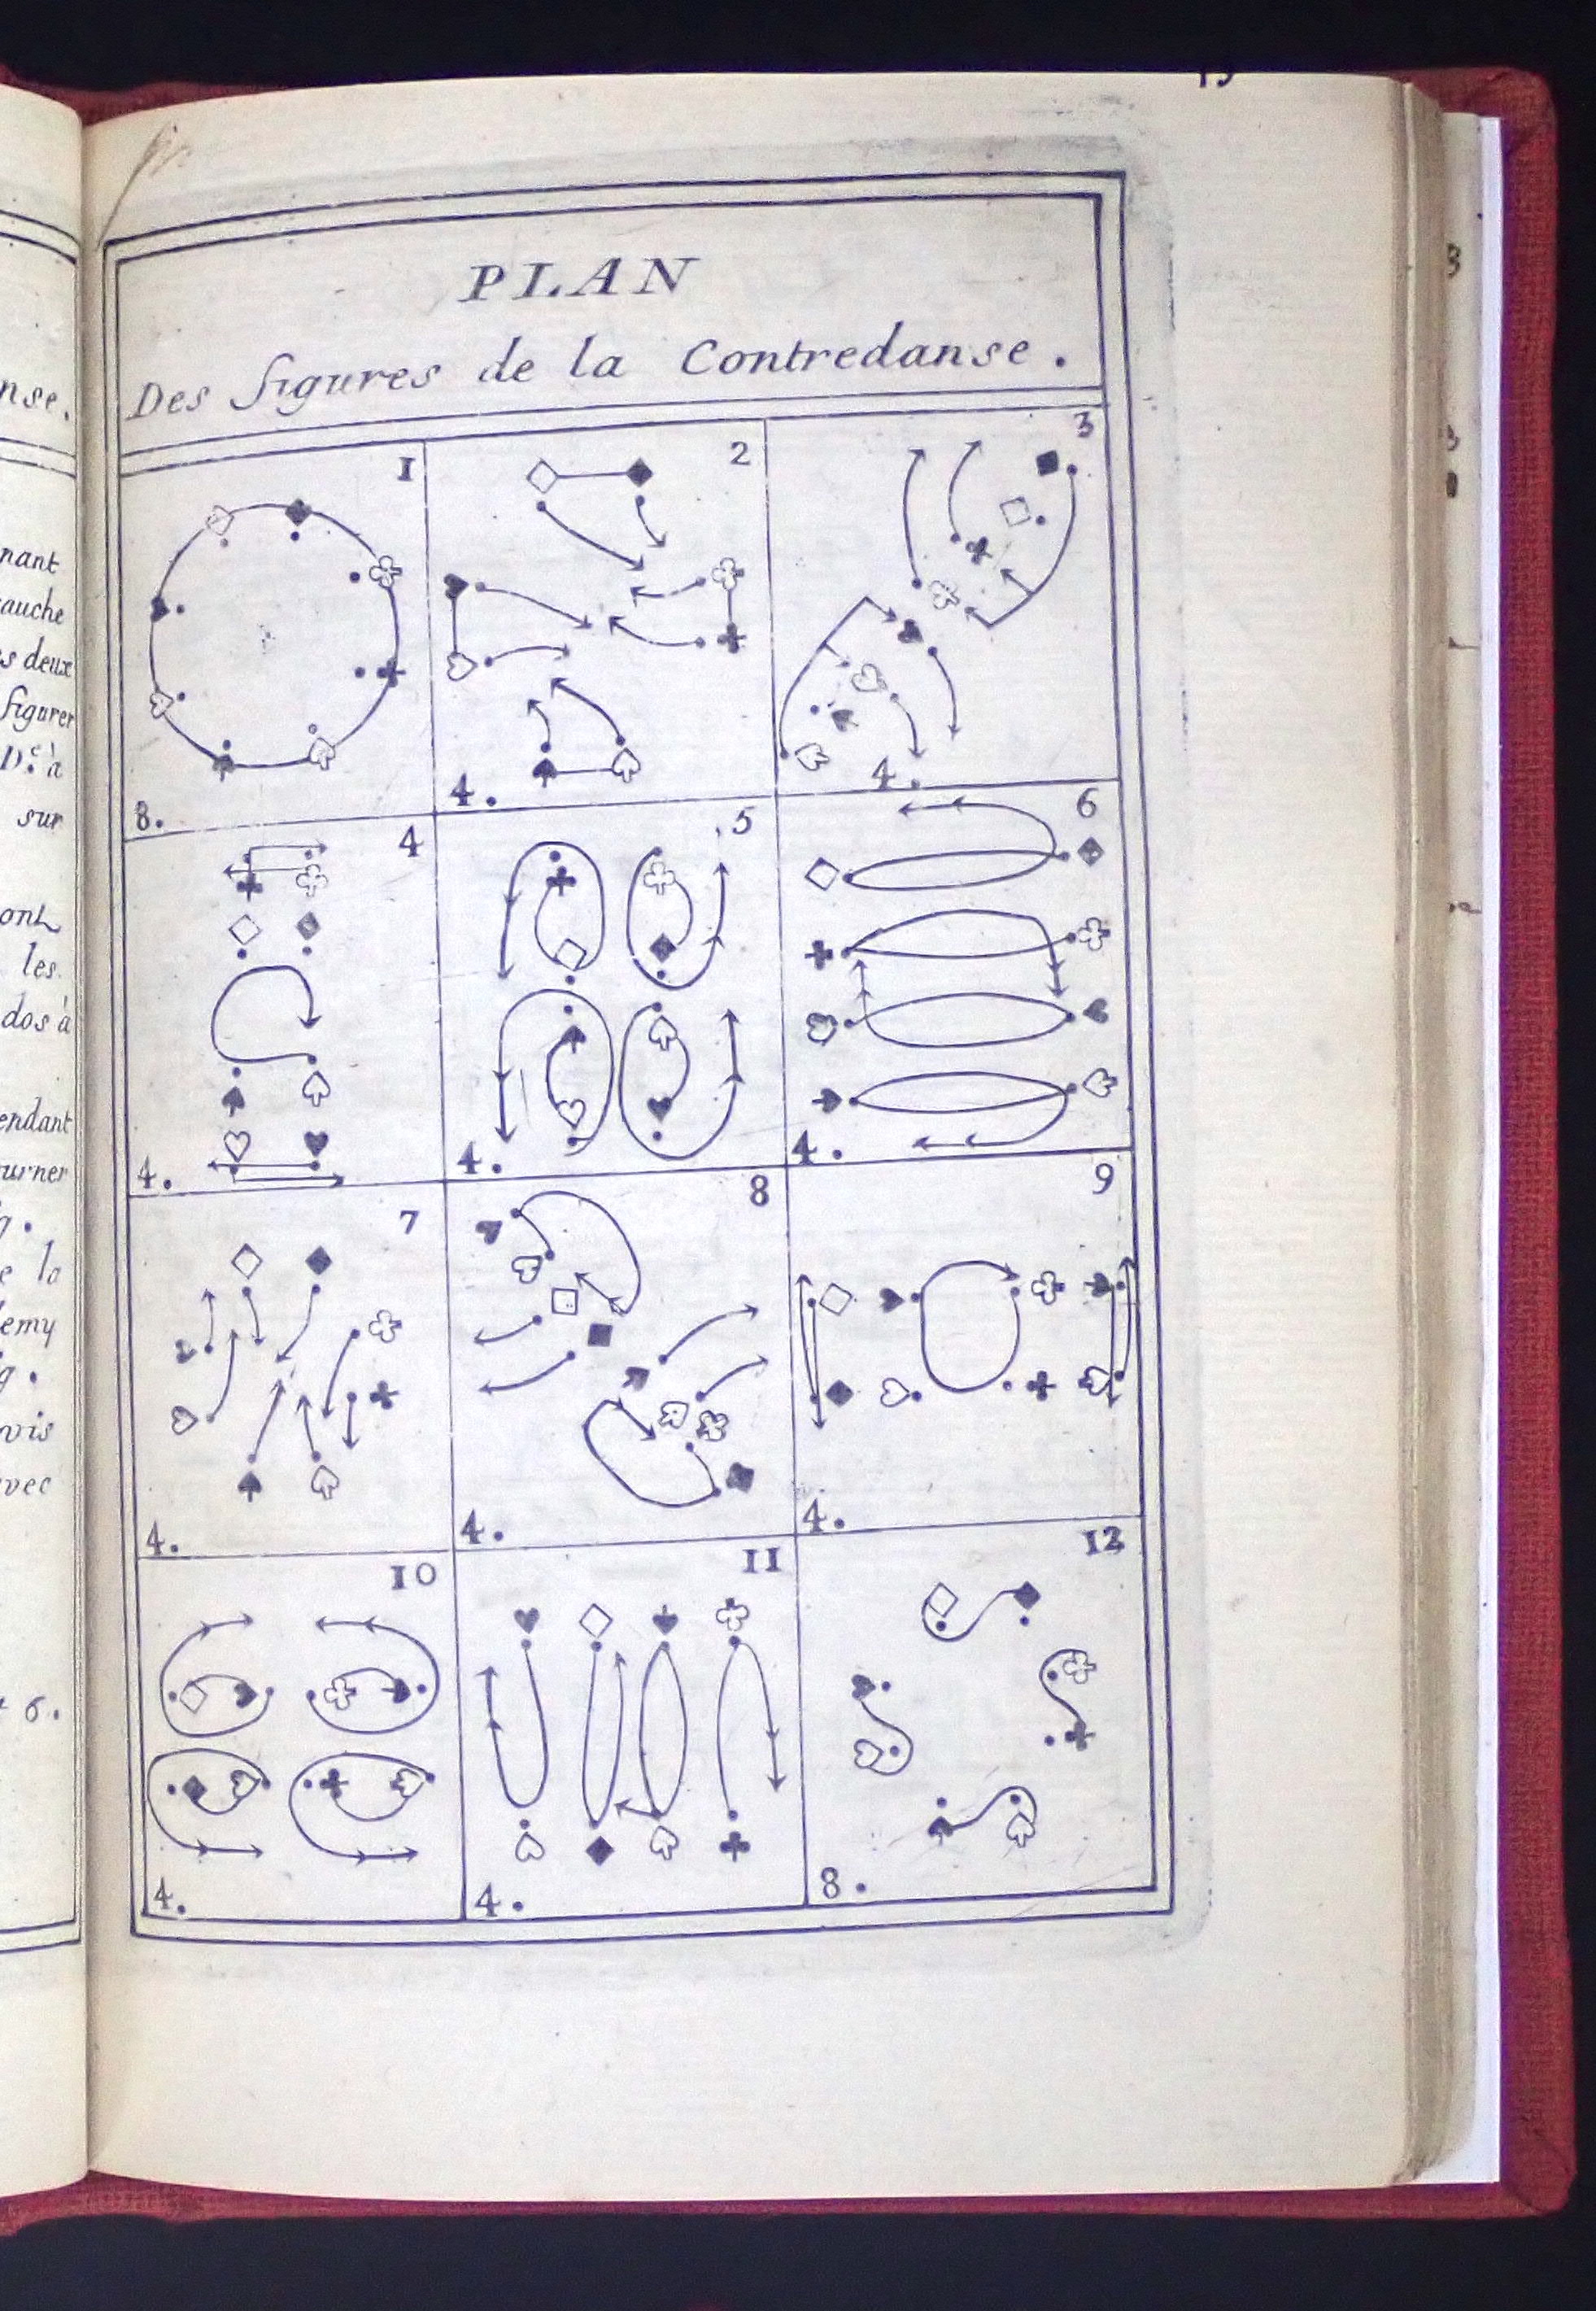 nse.
nant
auche
s deux
figurer
D.e à
sur
ont
les.
dos à
endant
urner
g.
e la
demy
g.
vis
vec
6.
PLAN
Des figures de la Contredanse.
1
8.
2
4.
3
4.
4
4.
5
4.
6
4.
7
4.
8
4.
9
4.
10
4.
11
4.
12
8.